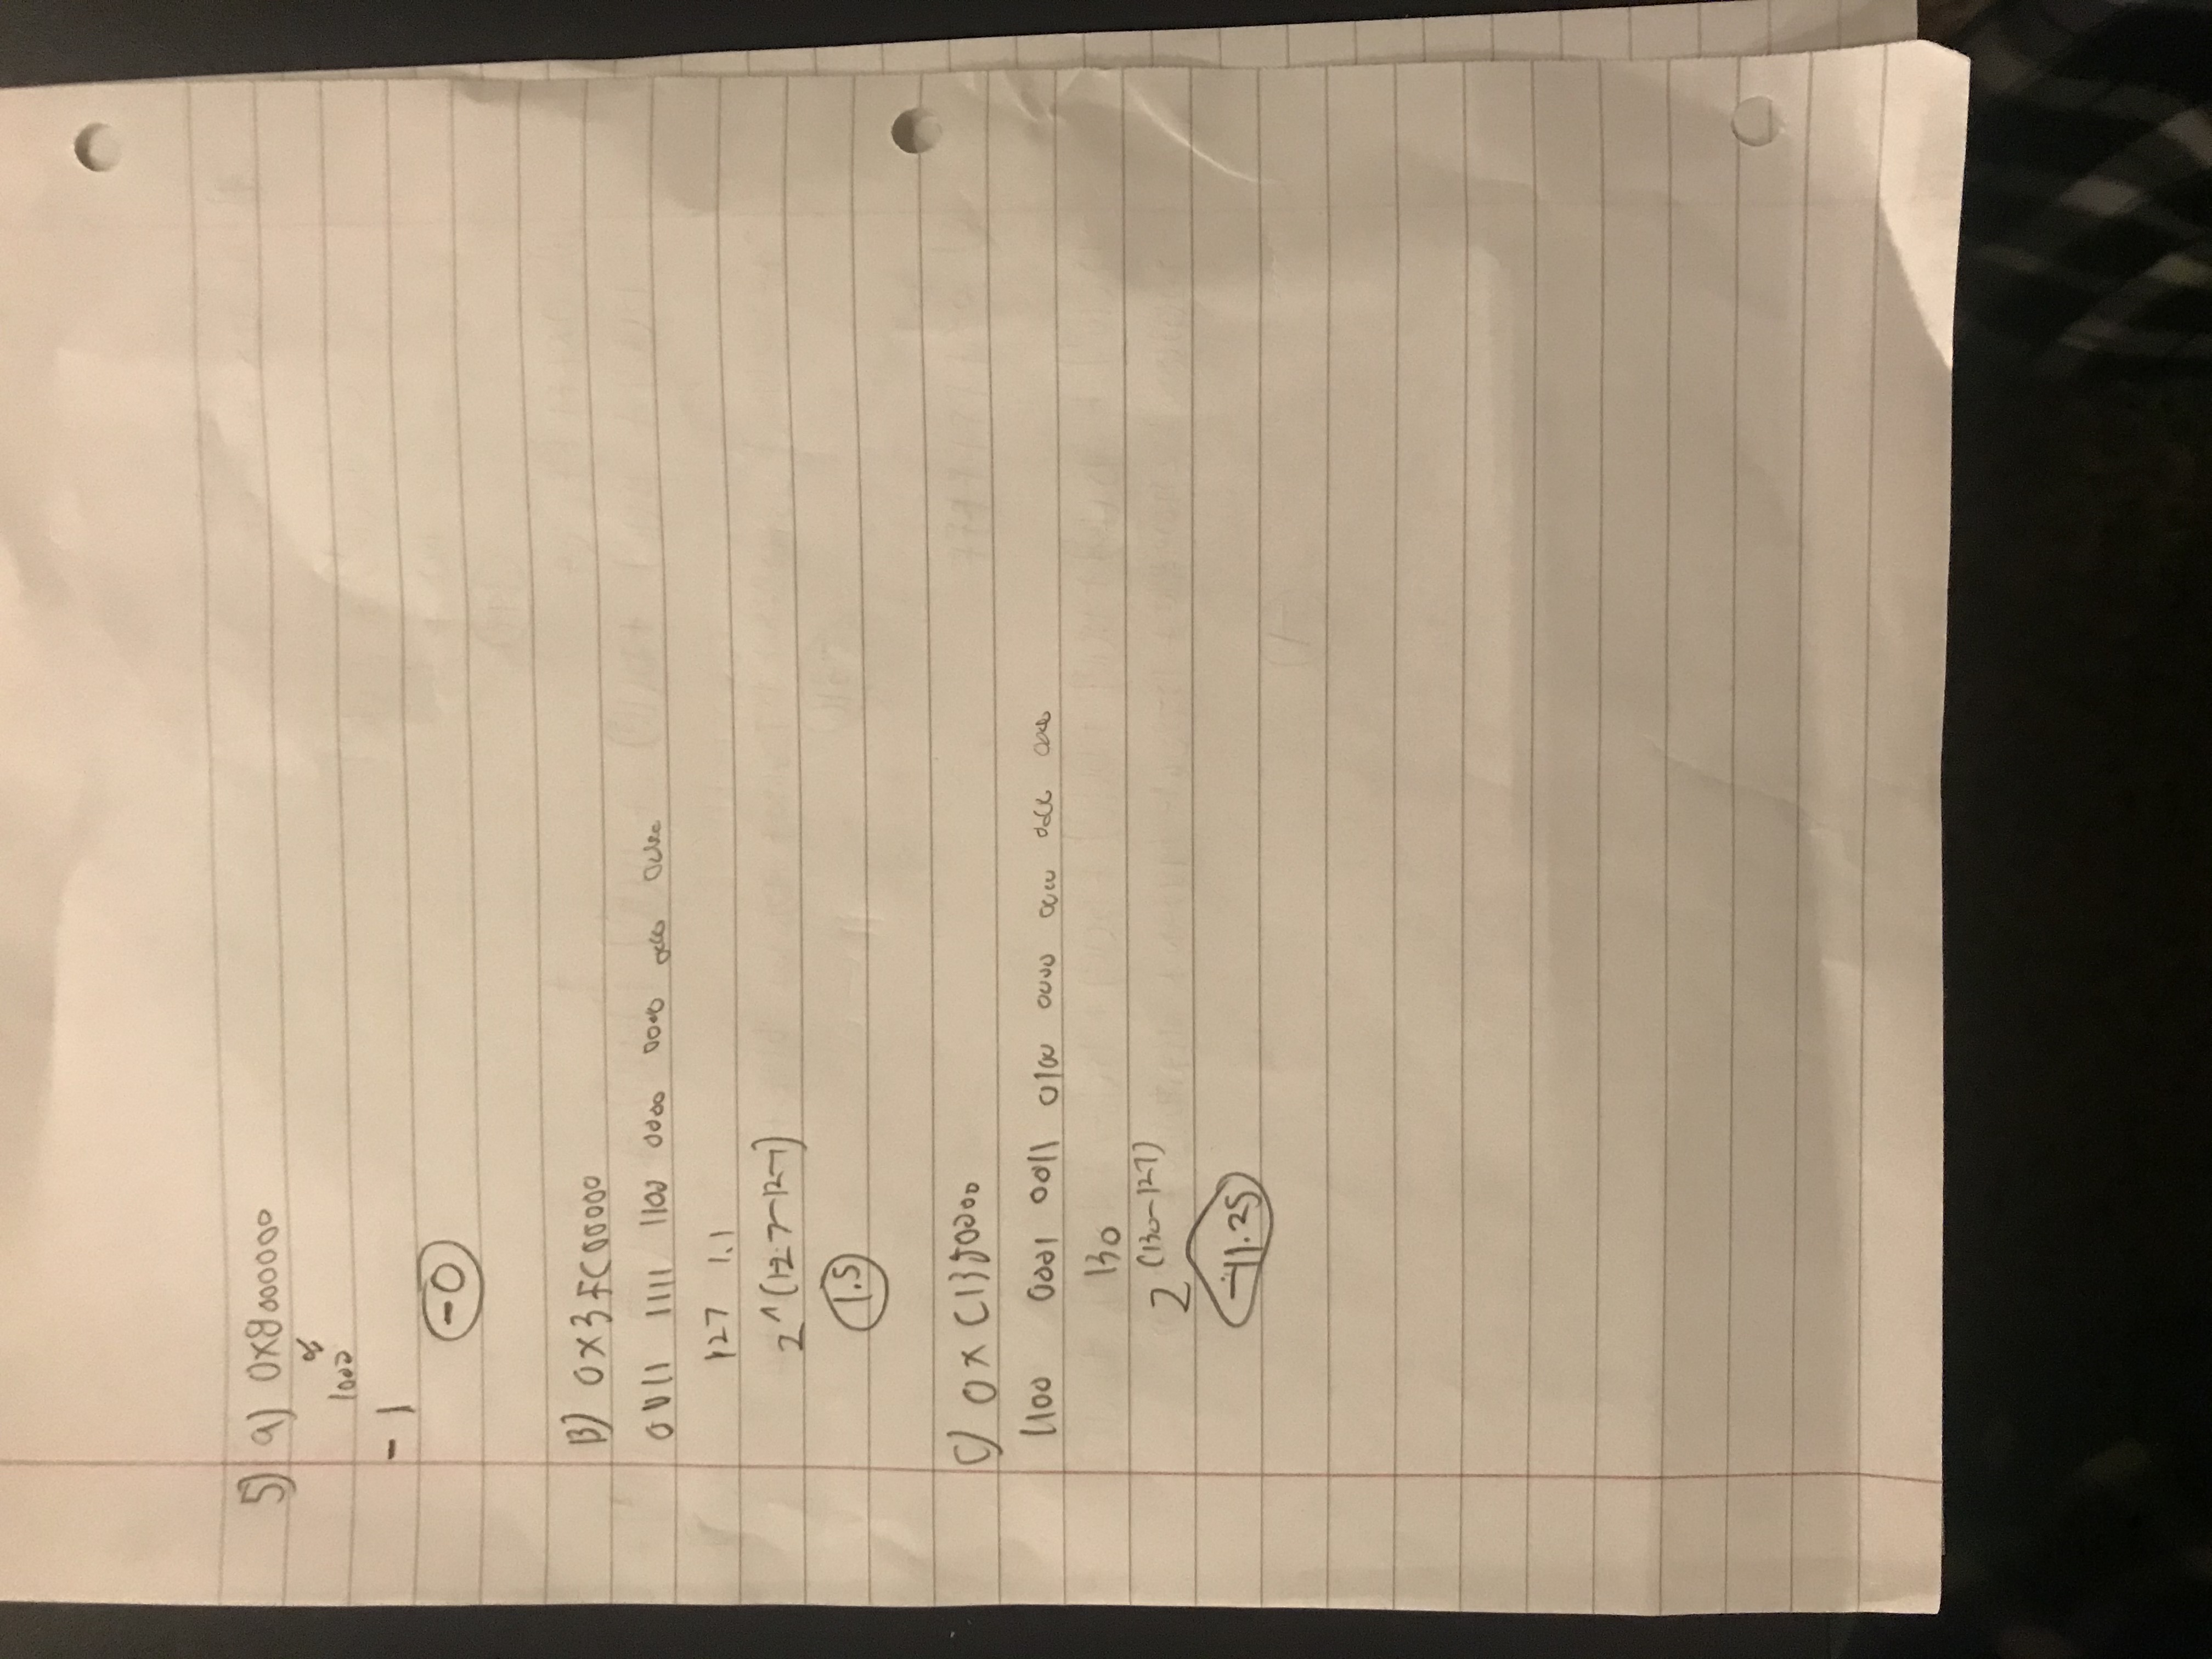 5) a) 0x8000000
1000
- 1
-0
B) 0x3FC00000
0011 1111 1100 0000 0000 0000 0000
127 1.1
2^(127-127)
1.5
C) 0x C1340000
1100 0001 0011 0100 0000 0000 0000 0000
130
2^(130-127)
-11.25